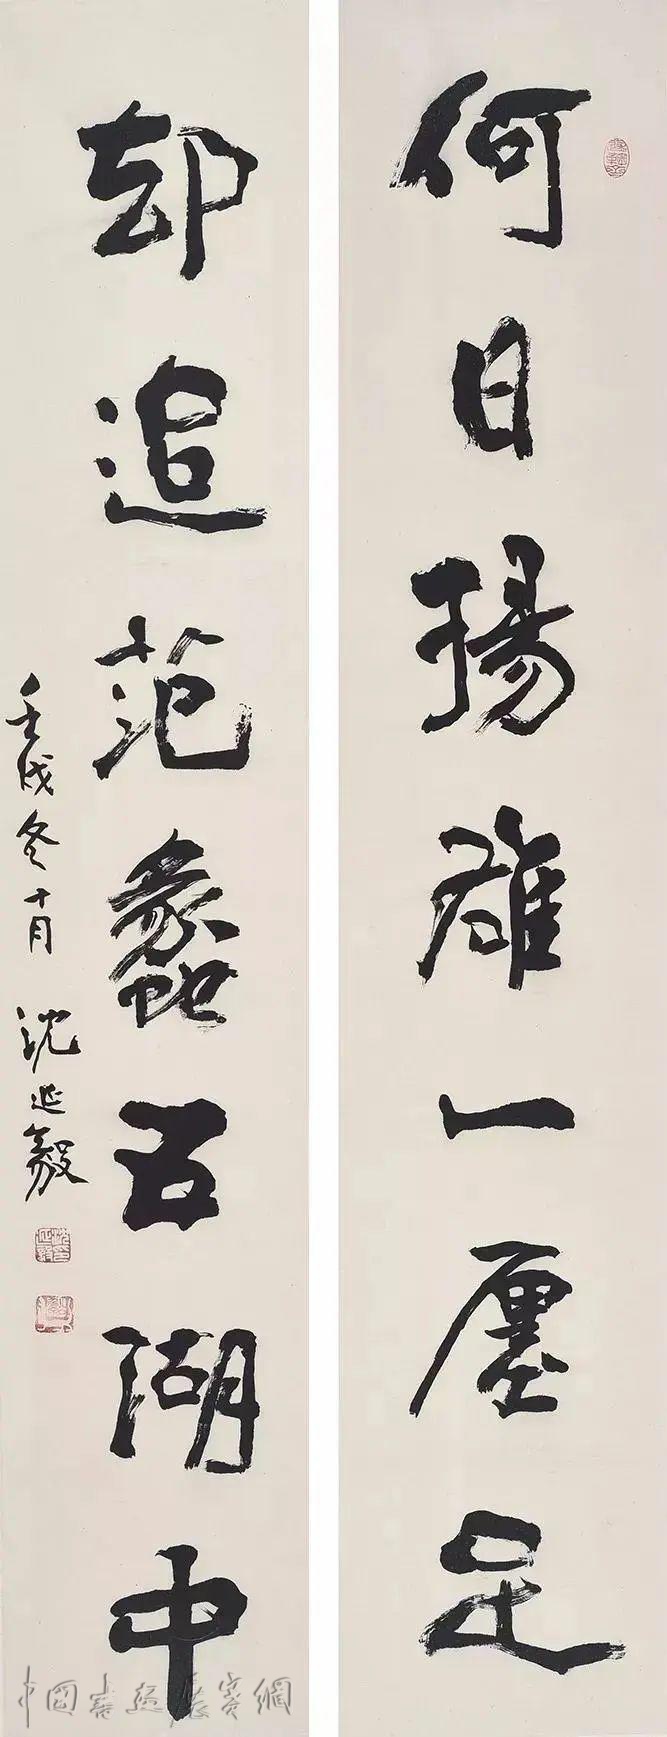 何日揚雄一廛足
却追范蠡五湖中
壬戌冬十月
沈延毅
中国书画展赛網